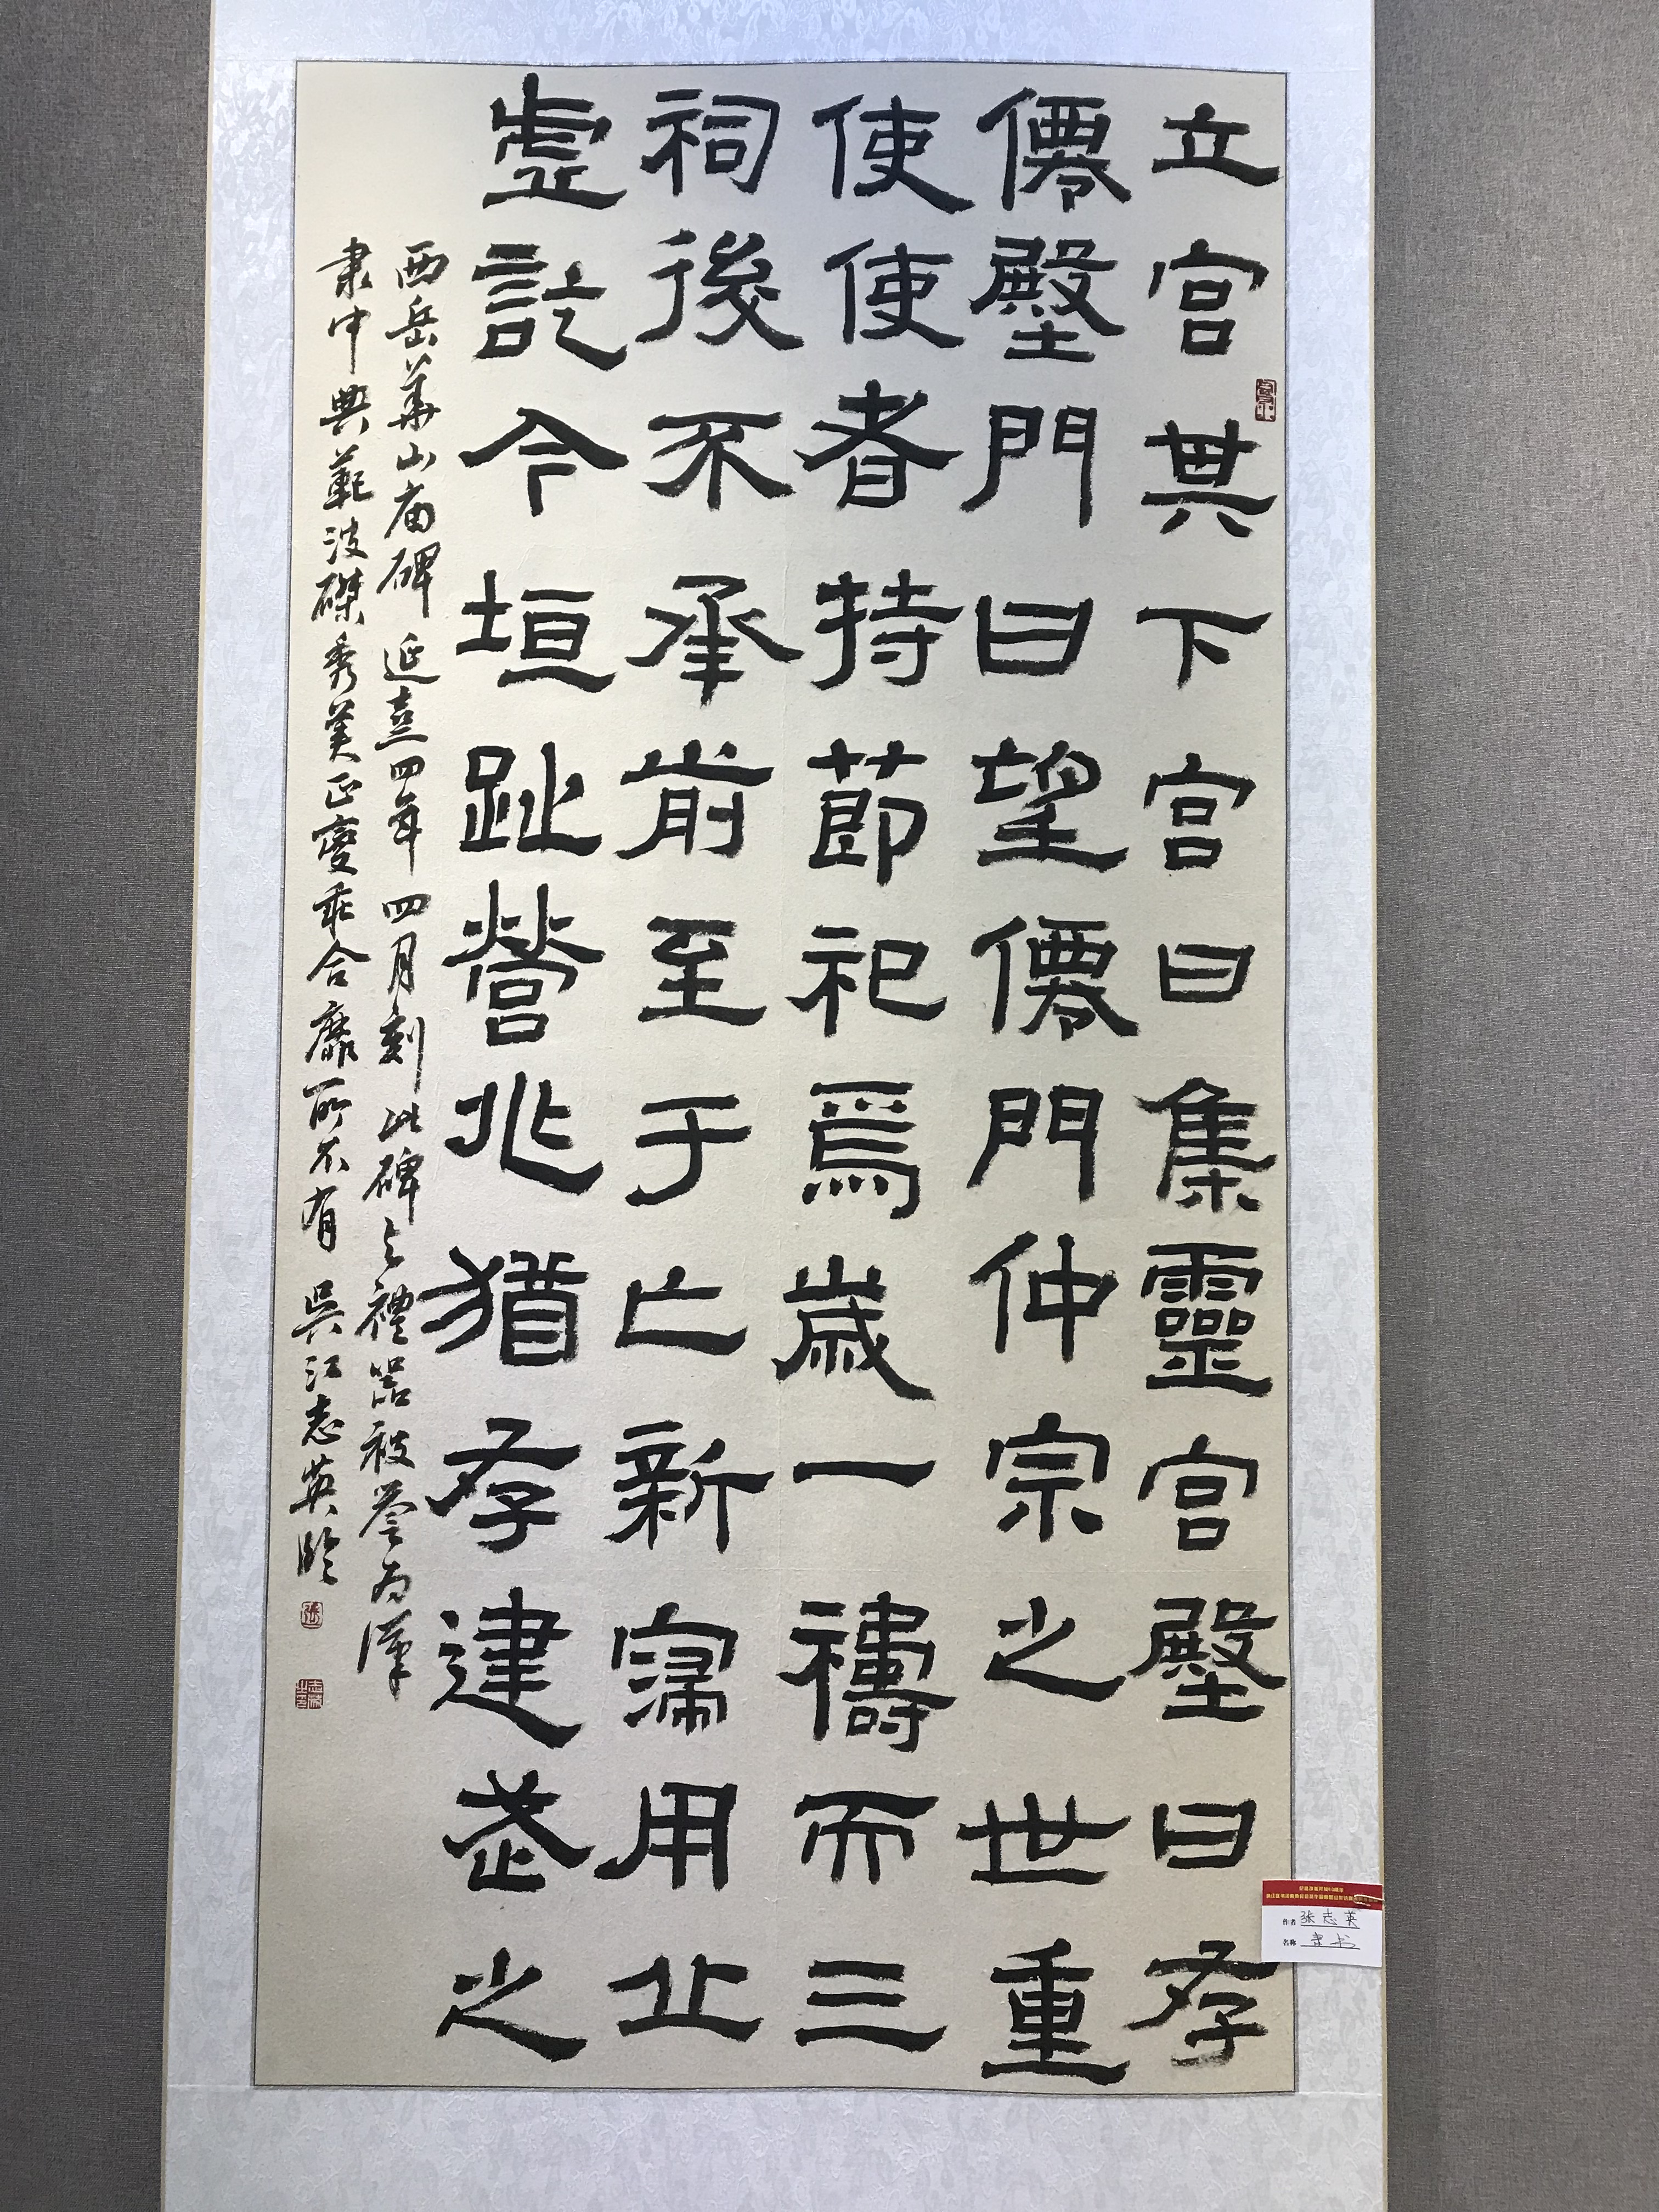 立宫其下宫曰集靈宫壂曰存
僊壂門曰望僊門仲宗之世重
使使者持莭祀焉歳一禱而三
祠後不承前至于亡新寖用丘
虚訖今垣趾營兆猶存建武之
西岳華山庙碑延熹四年四月刻此碑与禮器被誉为漢
隶中典範波磔秀美正變乖合靡所不有 吳江志英臨
作者 张志英
名称 隶书